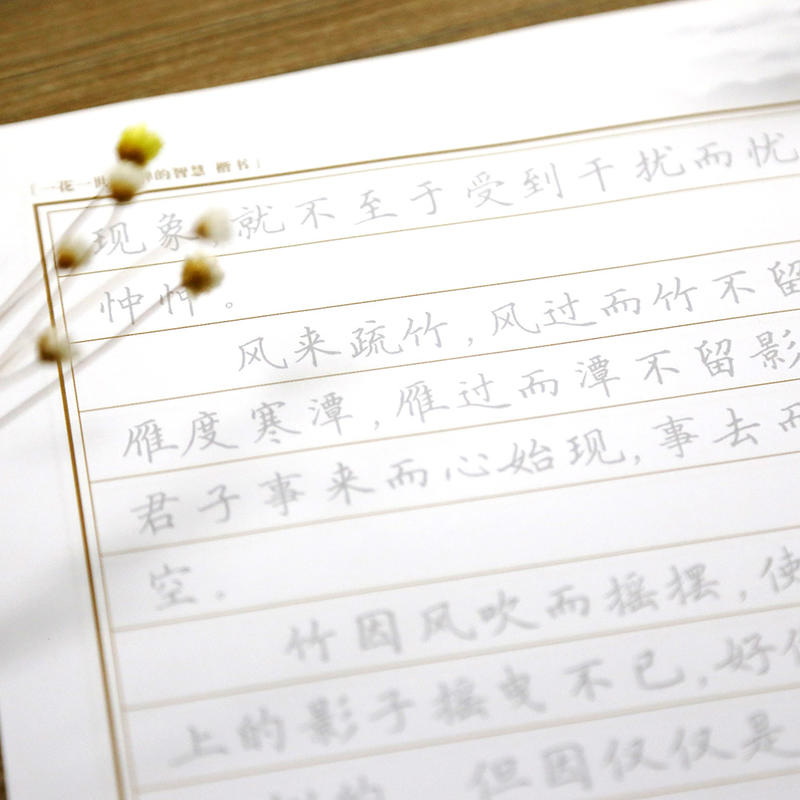 一花一世 的智慧 楷书
现象,就不至于受到干扰而忧
忡忡。
风来疏竹,风过而竹不留
雁度寒潭,雁过而潭不留影
君子事来而心始现,事去而
空。
竹因风吹而摇摆,使
上的影子摇曳不已,好像
但因仅仅是